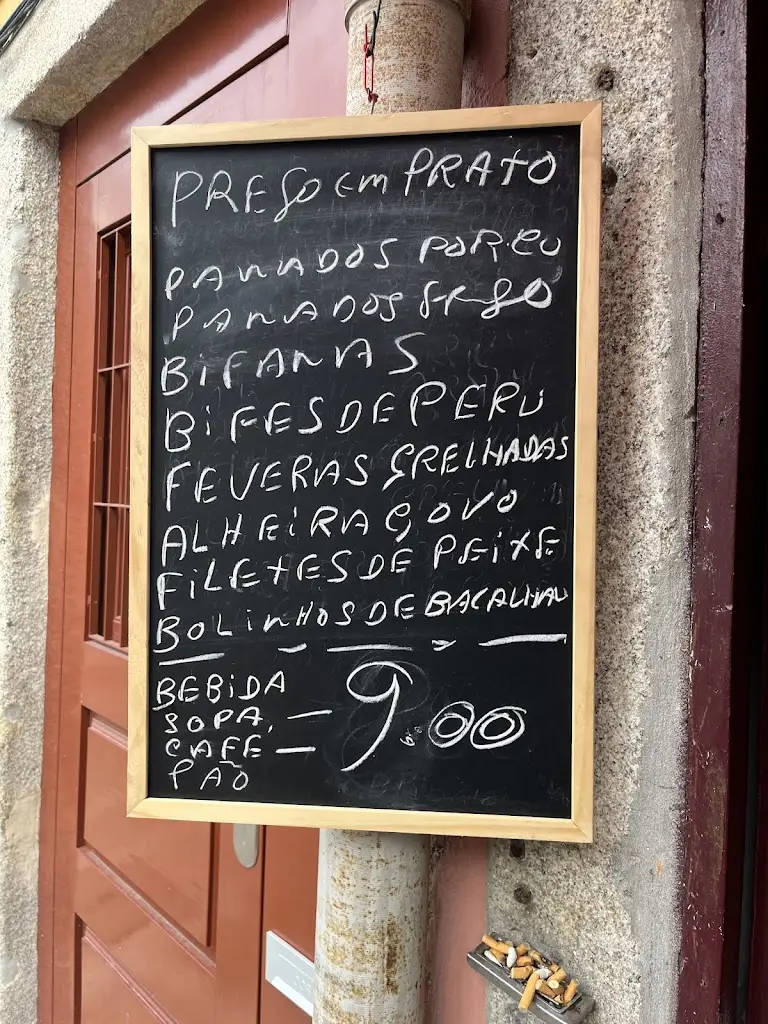 PREGO em PRATO
PANADOS PORCO
PANADOS
BIFANAS
BIFES DE PERU
FEVERAS GRELHADAS
ALHEIRA C OVO
FILETES DE PEIXE
BOLINHOS DE BACALHAU
BEBIDA
SOPA,
CAFE
PAO
9.00